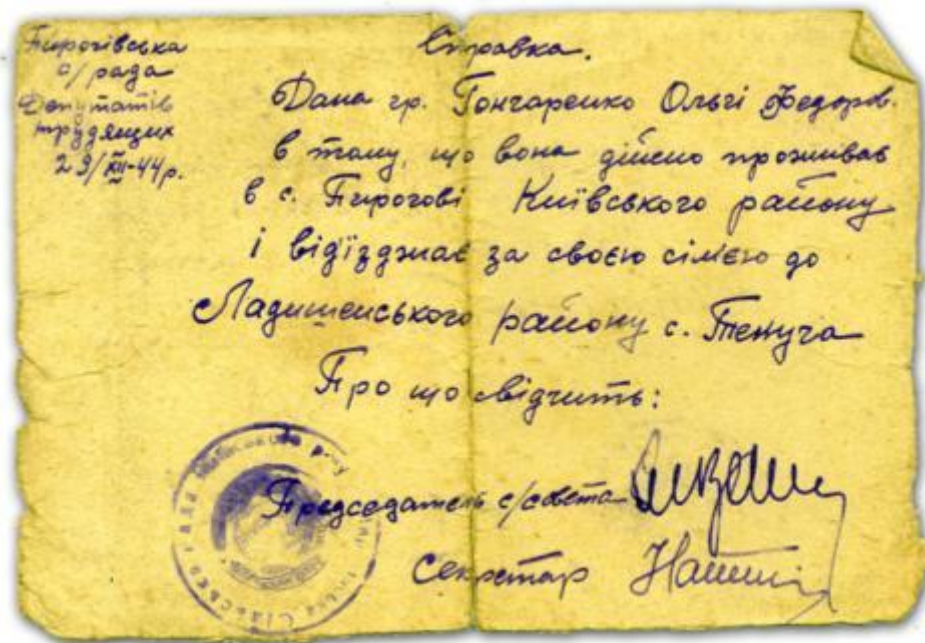 Пирогівська
с/рада
Депутатів
трудящих
29/XII-44р.
Справка.
Дана гр. Гончаренко Ользі Федоров.
в тому, що вона дійсно проживає
в с. Пирогові Київського району
і відїзджає за своєю сімєю до
району с.
Про що свідчить:
Председатель с/совета
Секретар